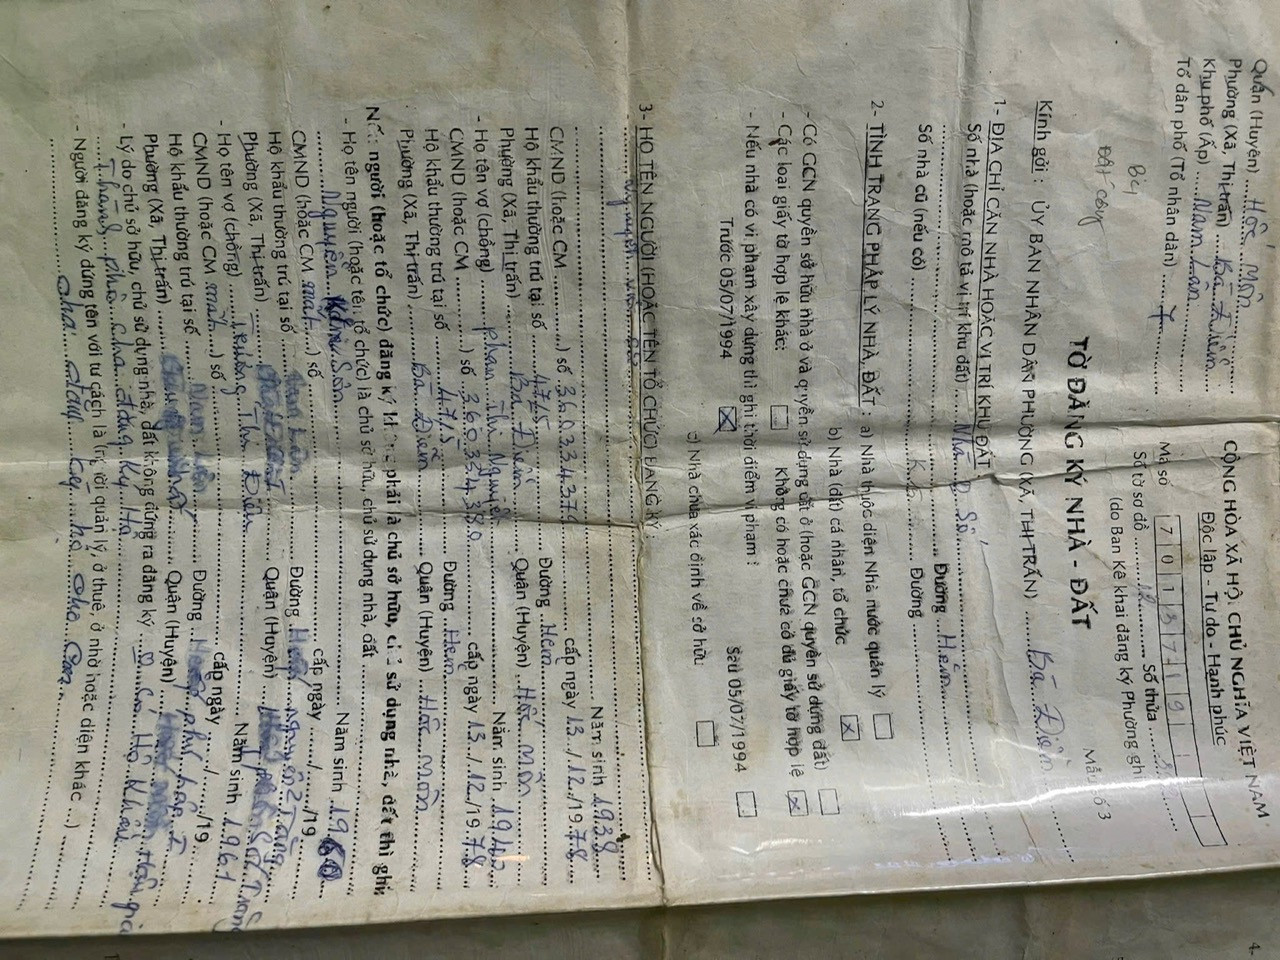 CỘNG HÒA XÃ HỘI CHỦ NGHĨA VIỆT NAM
Độc lập - Tự do - Hạnh phúc
Quận (Huyện) ... Hóc Môn
Phường (Xã, Thị trấn) ... Bà Điểm
Khu phố (Ấp) ... Nam Lân
Tổ dân phố (Tổ nhân dân) ... 7
Mã số 7 0 1 3 7 1 9
Số tờ sơ đồ ... 12 ... Số thửa
(do Ban Kê khai đăng ký Phường ghi
Mẫu số 3
TỜ ĐĂNG KÝ NHÀ - ĐẤT
Kính gởi : ỦY BAN NHÂN DÂN PHƯỜNG XÃ, THỊ TRẤN) ... Bà Điểm
1- ĐỊA CHỈ CĂN NHÀ HOẶC VỊ TRÍ KHU ĐẤT
Số nhà (hoặc mô tả vị trí khu đất) ... Đường ... Hẻm
Số nhà cũ (nếu có) ... Đường
2- TÌNH TRẠNG PHÁP LÝ NHÀ, ĐẤT : a) Nhà thuộc diện Nhà nước quản lý
b) Nhà (đất) cá nhân, tổ chức x
- Có GCN quyền sở hữu nhà ở và quyền sử dụng đất ở (hoặc GCN quyền sử dụng đất)
- Các loại giấy tờ hợp lệ khác: Không có hoặc chưa có đủ giấy tờ hợp lệ x
- Nếu nhà có vi phạm xây dựng thì ghi thời điểm vi phạm :
Trước 05/07/1994 x Sau 05/07/1994
c) Nhà chưa xác định về sở hữu
3- HỌ TÊN NGƯỜI (HOẶC TÊN TỔ CHỨC) ĐĂNG KÝ :
Nguyễn ... Năm sinh 1938
CMND (hoặc CM ...) số 360334379 cấp ngày 13/12/1978
Hộ khẩu thường trú tại số ... 47/5 ... Đường ... Hẻm
Phường (Xã, Thị trấn) ... Bà Điểm ... Quận (Huyện) ... Hóc Môn
- Họ tên vợ (chồng) ... Phan Thị Nguyên ... Năm sinh 1942
CMND (hoặc CM ...) số 360354380 cấp ngày 13/12/1978
Hộ khẩu thường trú tại số ... 47/5 ... Đường ... Hẻm
Phường (Xã, Thị trấn) ... Bà Điểm ... Quận (Huyện) ... Hóc Môn
Nếu người (hoặc tổ chức) đăng ký không phải là chủ sở hữu, chủ sử dụng nhà, đất thì ghi
- Họ tên người (hoặc tên tổ chức) là chủ sở hữu, chủ sử dụng nhà, đất
Nguyễn ... Sơn ... Năm sinh 1960
CMND (hoặc CM mất) số ... cấp ngày .../.../19
Hộ khẩu thường trú tại số ... Đường
Phường (Xã, Thị trấn) ... Quận (Huyện)
- Họ tên vợ (chồng) ... Trương Thị Điền ... Năm sinh 1961
CMND (hoặc CM mất) số ... cấp ngày .../.../19
Hộ khẩu thường trú tại số ... Đường
Phường (Xã, Thị trấn) ... Quận (Huyện)
- Lý do chủ sở hữu, chủ sử dụng nhà, đất không đứng ra đăng ký ... Có Hộ Khẩu
Thành phố cha đăng ký hộ
- Người đăng ký đứng tên với tư cách là (người quản lý, ở thuê, ở nhờ hoặc diện khác ...)
cha đăng ký hộ cho con